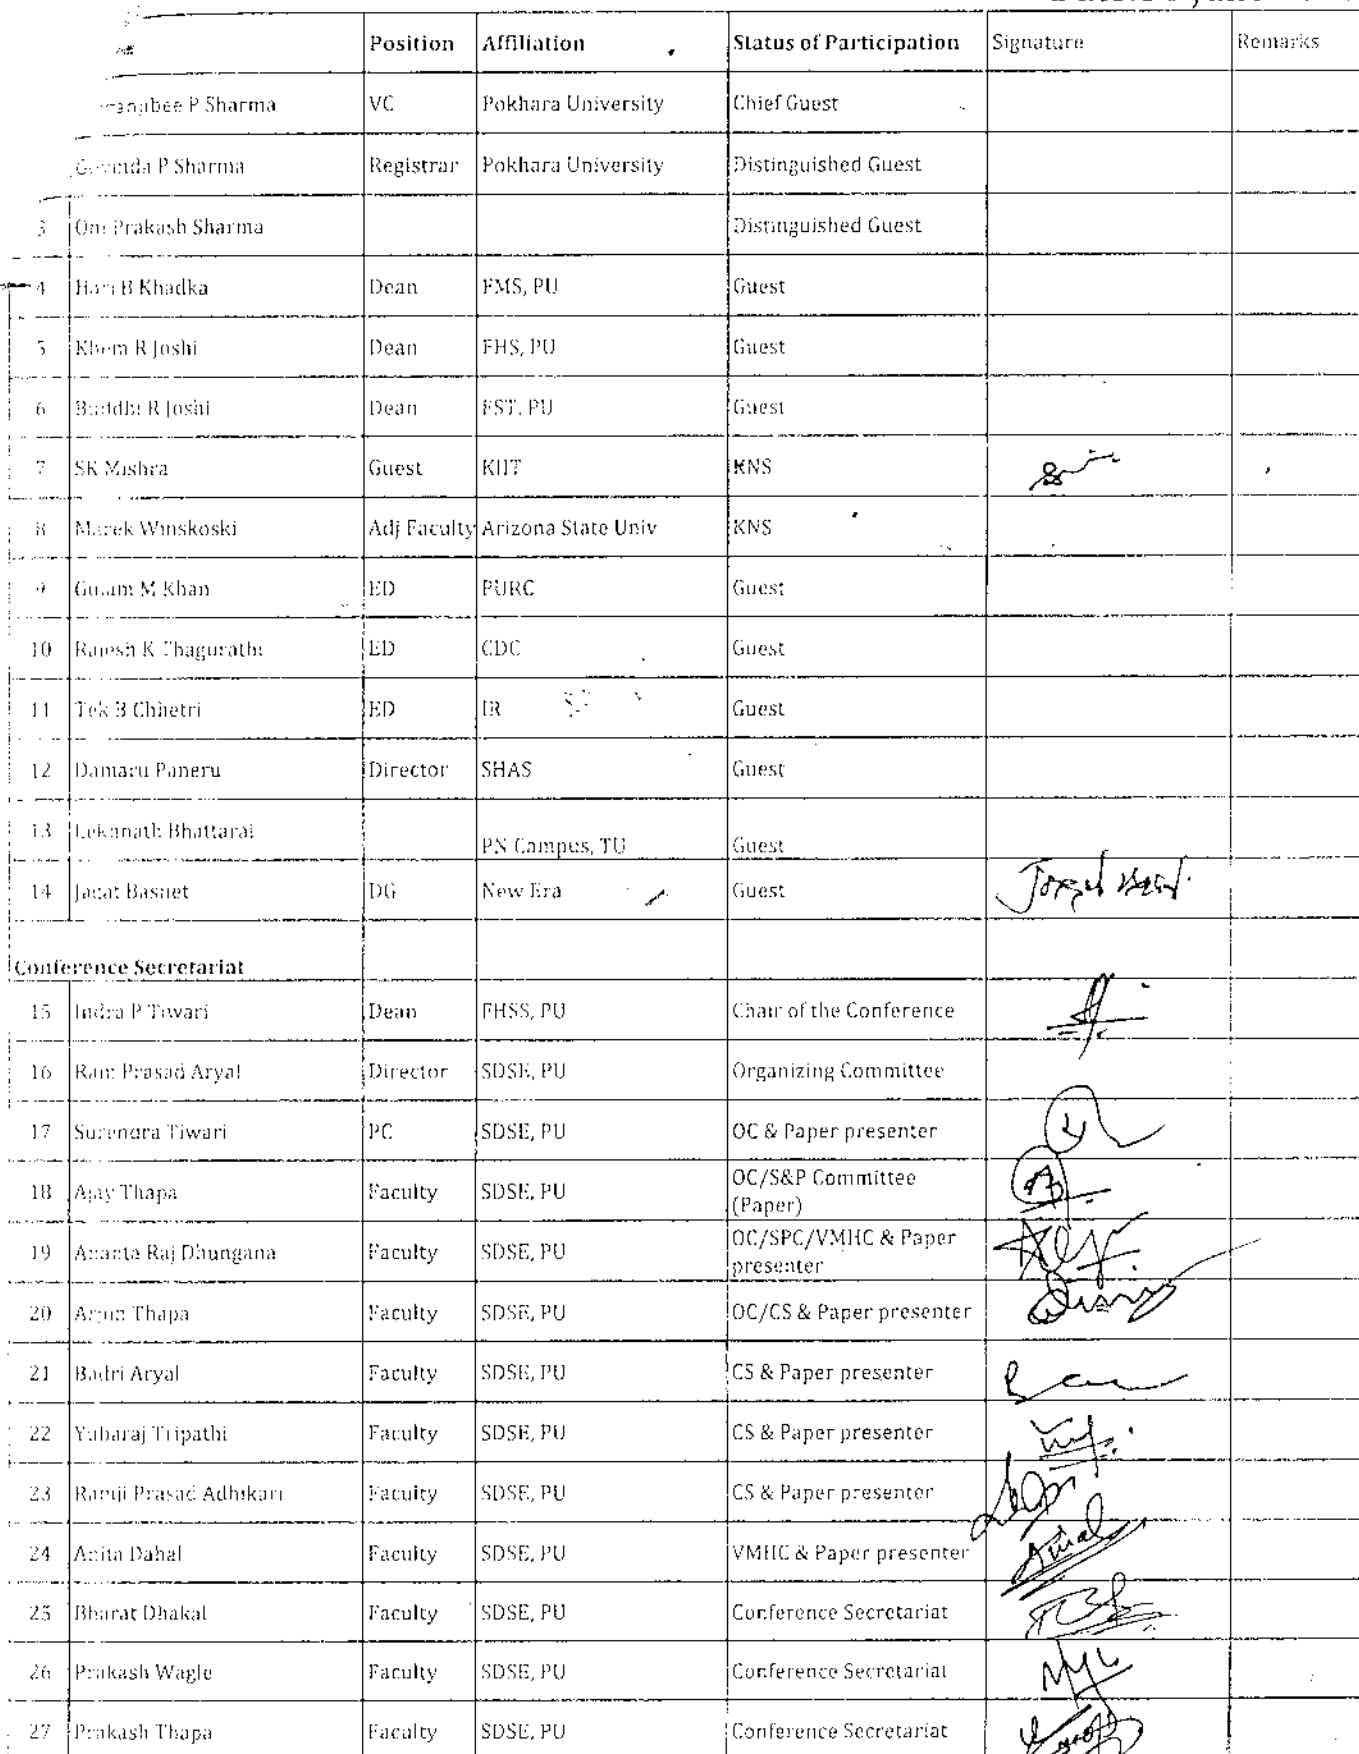 Position Affiliation Status of Participation Signature Remarks
P Sharma VC Pokhara University Chief Guest
Govinda P Sharma Registrar Pokhara University Distinguished Guest
3 Om Prakash Sharma Distinguished Guest
4 Hari B Khadka Dean FMS, PU Guest
5 Khem R Joshi Dean FHS, PU Guest
6 Buddhi R Joshi Dean FST, PU Guest
7 SK Mishra Guest KIIT KNS
8 Marek Winskoski Adj Faculty Arizona State Univ KNS
9 Gulam M Khan ED PURC Guest
10 Rajesh K Thagurathi ED CDC Guest
11 Tek B Chhetri ED IR Guest
12 Damaru Paneru Director SHAS Guest
13 Lekhnath Bhattarai PN Campus, TU Guest
14 Jagat Basnet DG New Era Guest
Conference Secretariat
15 Indra P Tiwari Dean FHSS, PU Chair of the Conference
16 Ram Prasad Aryal Director SDSE, PU Organizing Committee
17 Surendra Tiwari PC SDSE, PU OC & Paper presenter
18 Ajay Thapa Faculty SDSE, PU OC/S&P Committee
(Paper)
19 Ananta Raj Dhungana Faculty SDSE, PU OC/SPC/VMHC & Paper
presenter
20 Arjun Thapa Faculty SDSE, PU OC/CS & Paper presenter
21 Badri Aryal Faculty SDSE, PU CS & Paper presenter
22 Yubaraj Tripathi Faculty SDSE, PU CS & Paper presenter
23 Ramji Prasad Adhikari Faculty SDSE, PU CS & Paper presenter
24 Anita Dahal Faculty SDSE, PU VMHC & Paper presenter
25 Bharat Dhakal Faculty SDSE, PU Conference Secretariat
26 Prakash Wagle Faculty SDSE, PU Conference Secretariat
27 Prakash Thapa Faculty SDSE, PU Conference Secretariat